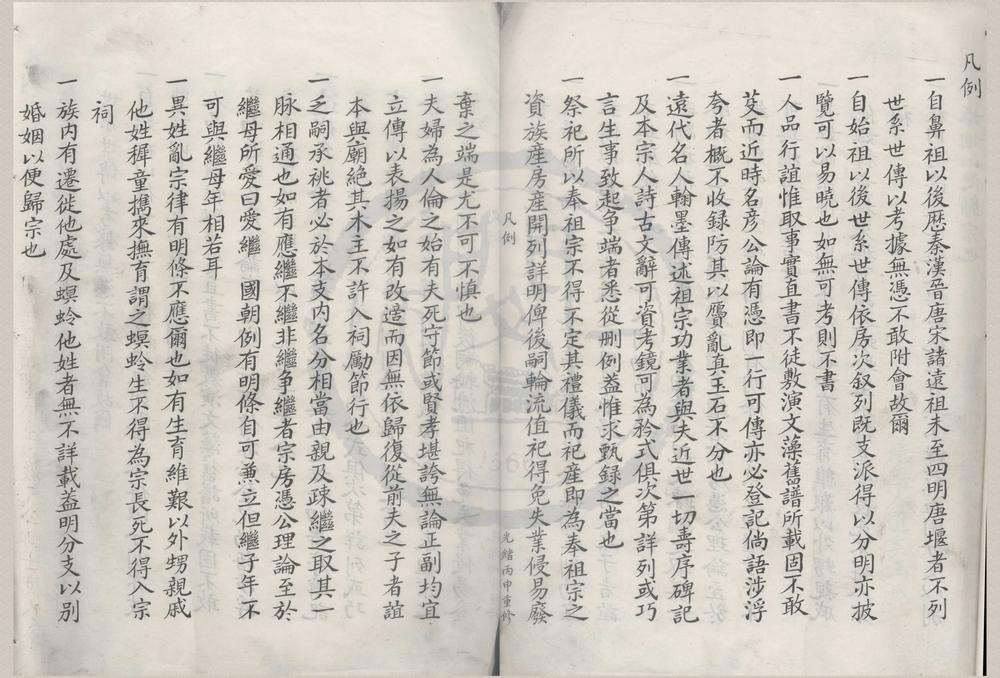 凡例
一自鼻祖以後歷秦漢晉唐宋諸遠祖未至四明唐堰者不列
世系世傳以考據無憑不敢附會故爾
一自始祖以後世系世傳依房次叙列既支派得以分明亦披
覽可以易曉也如無可考則不書
一人品行誼惟取事實直書不徒敷演文藻舊譜所載固不敢
芟而近時名彦公論有憑即一行可傳亦必登記倘語涉浮
夸者概不收錄防其以贋亂真玉石不分也
一遠代名人翰墨傳述祖宗功業者與夫近世一切壽序碑記
及本宗人詩古文辭可資考鏡可為矜式俱次第詳列或巧
言生事致起争端者悉從删例葢惟求甄錄之當也
一祭祀所以奉祖宗不得不定其禮儀而祀產即為奉祖宗之
資族產房產開列詳明俾後嗣輪流值祀得免失業侵易廢
凡例
光緒丙申重修
棄之端是尤不可不慎也
一夫婦為人倫之始有夫死守節或賢孝堪誇無論正副均宜
立傳以表揚之如有改適而因無依歸復從前夫之子者誼
本與廟絕其木主不許入祠勵節行也
一乏嗣承祧者必於本支内名分相當由親及疎繼之取其一
脉相通也如有應繼不繼非繼争繼者宗房憑公理論至於
繼母所愛曰愛繼 國朝例有明條自可兼立但繼子年不
可與繼母年相若耳
一異姓亂宗律有明條不應爾也如有生育維艱以外甥親戚
他姓穉童擕來撫育謂之螟蛉生不得為宗長死不得入宗
祠
一族内有遷徙他處及螟蛉他姓者無不詳載葢明分支以别
婚姻以便歸宗也